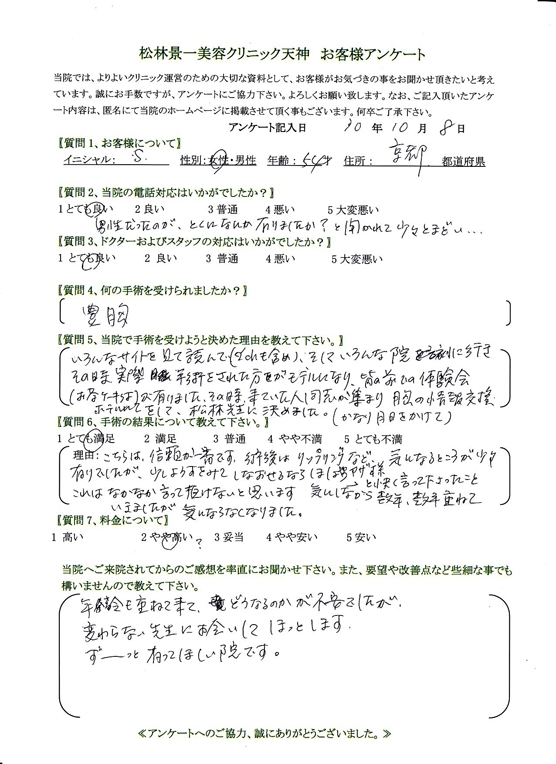 松林景一美容クリニック天神 お客様アンケート
当院では、よりよいクリニック運営のための大切な資料として、お客様がお気づきの事をお聞かせ頂きたいと考え
ています。誠にお手数ですが、アンケートにご協力下さい。よろしくお願い致します。なお、ご記入頂いたアンケ
ート内容は、匿名にて当院のホームページに掲載させて頂く事もございます。何卒ご了承下さい。
アンケート記入日 30 年 10 月 8 日
【質問1、お客様について】
イニシャル: S. 性別:女性・男性 年齢:54才 住所: 京都 都道府県
【質問2、当院の電話対応はいかがでしたか?】
1とても良い 2良い 3普通 4悪い 5大変悪い
男性だったのが、とくになんか有りましたか?と聞かれて少々とまどい…
【質問3、ドクターおよびスタッフの対応はいかがでしたか?】
1とても良い 2良い 3普通 4悪い 5大変悪い
【質問4、何の手術を受けられましたか?】
豊胸
【質問5、当院で手術を受けようと決めた理由を教えて下さい。】
いろんなサイトを見て読んで、そしていろんな院に行き
その時実際手術をされた方がモデルになり、皆の前での体験会
が有りました、その時、来ていた人何人か集まり 胸の情報交換
をして、松林先生に決めました。(かなり月日をかけて)
【質問6、手術の結果について教えて下さい。】
1とても満足 2満足 3普通 4やや不満 5とても不満
理由:こちらは、信頼が一番です。術後はリップリングなど、気になるところが少々
有りでしたが、少しようすをみて しなおせるなら と快く言って下さったこと
これは なかなか言って頂けないと思います 気にしながら 数年、数年重ねて
いきましたが 気にならなくなりました。
【質問7、料金について】
1高い 2やや高い? 3妥当 4やや安い 5安い
当院へご来院されてからのご感想を率直にお聞かせ下さい。また、要望や改善点など些細な事でも
構いませんので教えて下さい。
年齢も重ねて来て、どうなるのかが不安でしたが、
変わらない先生にお会いして ほっとします。
ず――っと 有ってほしい院です。
≪アンケートへのご協力、誠にありがとうございました。≫